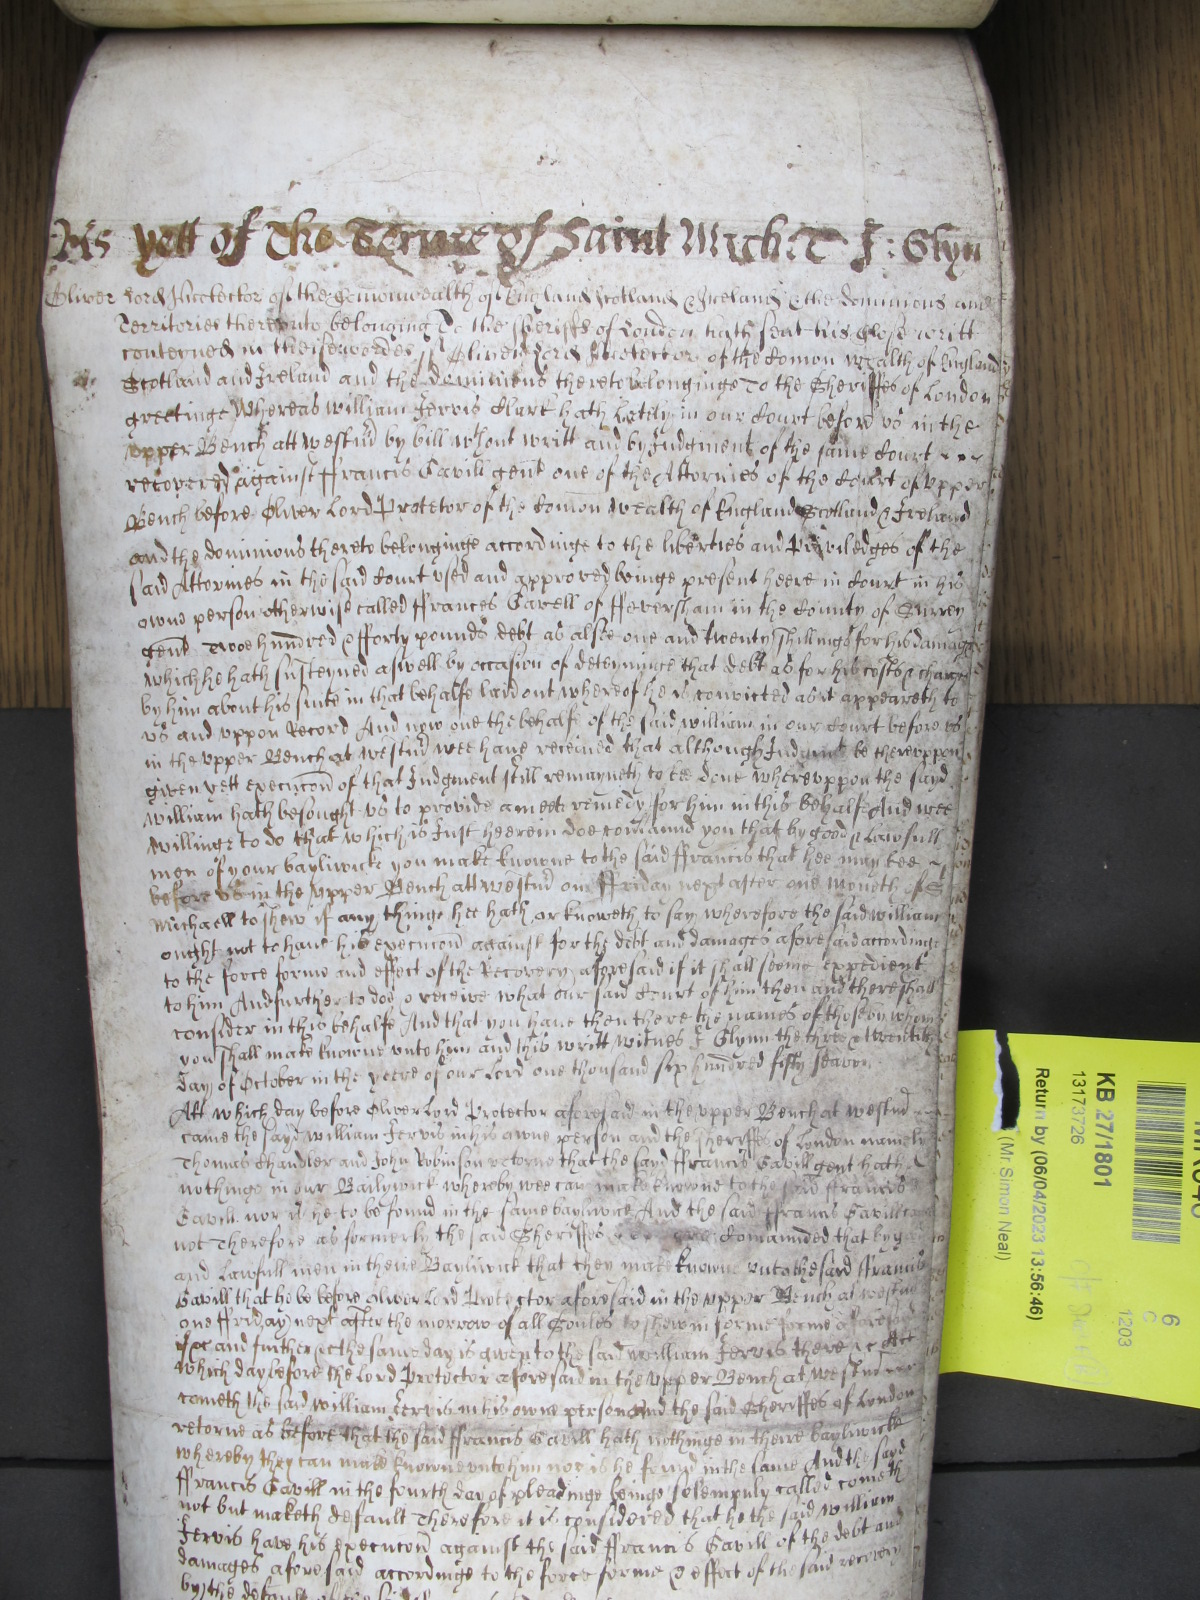 As yett of The Terme of Saint Mich: T J: Glyn
Oliver Lord Protector of the Comonwealth of England Scotland & Ireland & the dominions and
Territories thereunto belonging To the Sheriffs of London hath sent his Close writt
conteyned in theise wordes ss Oliver Lord Protector of the Comon wealth of England
Scotland and Ireland and the dominions thereto belonginge To the Sheriffes of London
greetinge Whereas William Jervis Clark hath Lately in our Court before us in the
upper Bench att Westm̃ by bill wthout writt and by Judgment of the same Court
recovered against ffrancis Cavill gent̃ one of the Attornies of the Court of upper
Bench before Oliver Lord Protector of the Comon wealth of England Scotland & Ireland
and the dominions thereto belonginge accordinge to the liberties and Priviledges of the
said Attornies in the said Court used and approved beinge present heere in Court in his
owne person otherwise called ffrances Cavell of ffeversham in the County of Surrey
gent̃ Twoe hundred & fforty pounds debt as alsoe one and twenty shillings for his damages
which he hath susteyned aswell by occasion of deteyninge that debt as for his costs & charges
by him about his suite in that behalfe laid out whereof he is convicted as it appeareth to
us and uppon Record And now one the behalfe of the said William in our Court before us
in the upper Bench at Westm̃ wee have received that although Judgment be thereuppon
given yett execucõn of that Judgment still remayneth to bee done whereuppon the sayd
William hath besought us to provide a meete remedy for him in this behalfe And wee
willinge to do that which is Just heerein doe comaund you that by good & Lawfull
men of your bayliwicke you make knowne to the said ffrancis that hee may bee
before us in the upper Bench att Westm̃ on ffriday next after one moneth of S
Michaell to shew if any thinge hee hath or knoweth to say wherefore the said William
ought not to have his execucõn against for the debt and damages aforesaid accordinge
to the force forme and effect of the Recovery aforesaid if it shall seeme expedient
to him And further to doe & receive what our said Court of him then and there shall
consider in this behalfe And that you have then there the names of those by whom
you shall make knowne unto him and this writt witnes J Glynn the three & twentith
day of October in the yeere of our Lord one thousand six hundred fifty seaven
Att which day before Oliver Lord Protector aforesaid in the upper Bench at Westm̃
came the sayd William Jervis in his owne person and the Sheriffes of London namely
Thomas Chandler and John Robinson retorne that the sayd ffrancis Cavill gent hath
nothinge in our Bailywick whereby wee can make knowne to the said ffrancis
Cavill nor is he to be found in the same bayliwick And the said ffrancis Cavill came
not Therefore as formerly the said Sheriffes Comaunded that by good
and Lawfull men in theire Bayliwick that they make knowne unto the sayd ffrancis
Cavill that he be before Oliver Lord Protector aforesaid in the upper Bench at Westm̃
one ffriday next after the morrow of all Soules to shew in forme forme aforesaid
if &c and further &c the same day is given to the said William Jervis there &c Att
which day before the Lord Protector aforesaid in the upper Bench at Westm̃
cometh the said William Jervis in his owne person And the said Sheriffes of London
retorne as before that the said ffrancis Cavill hath nothinge in theire bayliwicke
whereby they can make knowne unto him nor is he found in the same And the sayd
ffrancis Cavill in the fourth day of pleadinge beinge solempnly called cometh
not but maketh default Therefore it is considered that he the said William
Jervis have his execucõn against the said ffrancis Cavill of the debt and
damages aforesaid accordinge to the force forme & effect of the said recovery
by the default of
KB 27/1801
13173726
Return by (06/04/2023 13:56:46)
(Mr Simon Neal)
6
C
1203